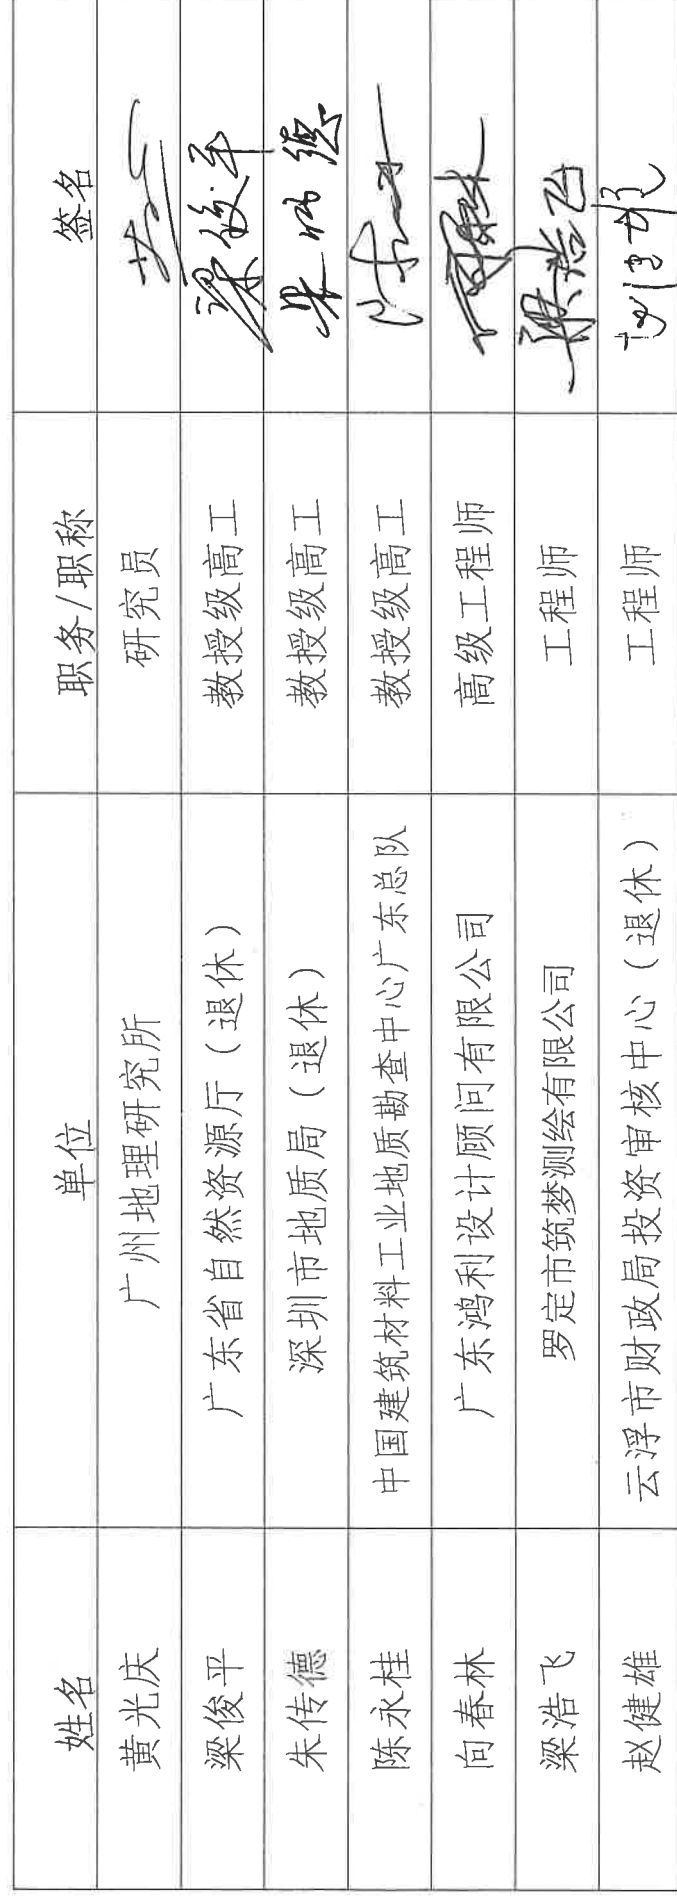 姓名 单位 职务/职称 签名
黄光庆 广州地理研究所 研究员
梁俊平 广东省自然资源厅（退休） 教授级高工 梁俊平
朱传德 深圳市地质局（退休） 教授级高工
陈永桂 中国建筑材料工业地质勘查中心广东总队 教授级高工
向春林 广东鸿利设计顾问有限公司 高级工程师
梁浩飞 罗定市筑梦测绘有限公司 工程师 梁浩飞
赵健雄 云浮市财政局投资审核中心（退休） 工程师